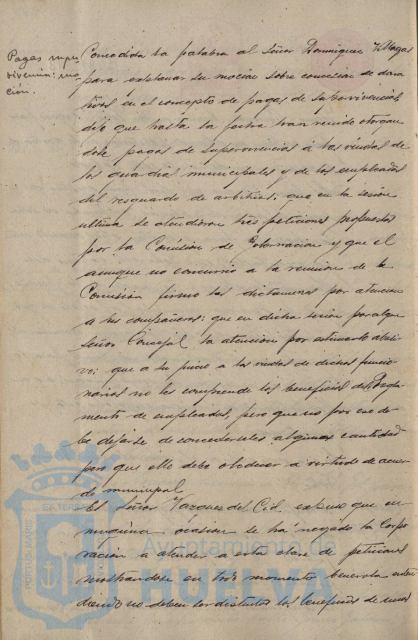 Pagas super
vivencia: mo
ción.
Concedida la palabra al Señor Dominguez Villegas
para explanar su moción sobre concesion de dona
tivos en el concepto de pagas de supervivencias,
dijo que hasta la fecha han venido otorgan
dose pagas de supervivencias á las viudas de
los guardias municipales y de los empleados
del resguardo de arbitrios; que en la sesion
ultima se atendieron tres peticiones propuestas
por la Comisión de Gobernacion y que el
aunque no concurrió a la reunion de la
Comision firmó los dictamenes por atencion
a sus compañeros: que en dicha sesion
Señor Concejal la atencion por estimarlo abusi
vo; que a su juicio a las viudas de dichos funcio
narios no les comprende los beneficios del Regla
mento de empleados, pero que no por eso de
be dejarse de concederseles alguna cantidad
pero que ello debe obedecer a virtud de acuer
do municipal
El Señor Vazquez del Cid expuso que en
ninguna ocasion se ha negado la Corpo
racion a atender a esta clase de peticiones
mostrandose en todo momento benevola enten
diendo no deben ser distintos los beneficios de unos
PORTUS MARIS
ET TERRA
Ayuntamiento de
HUELVA